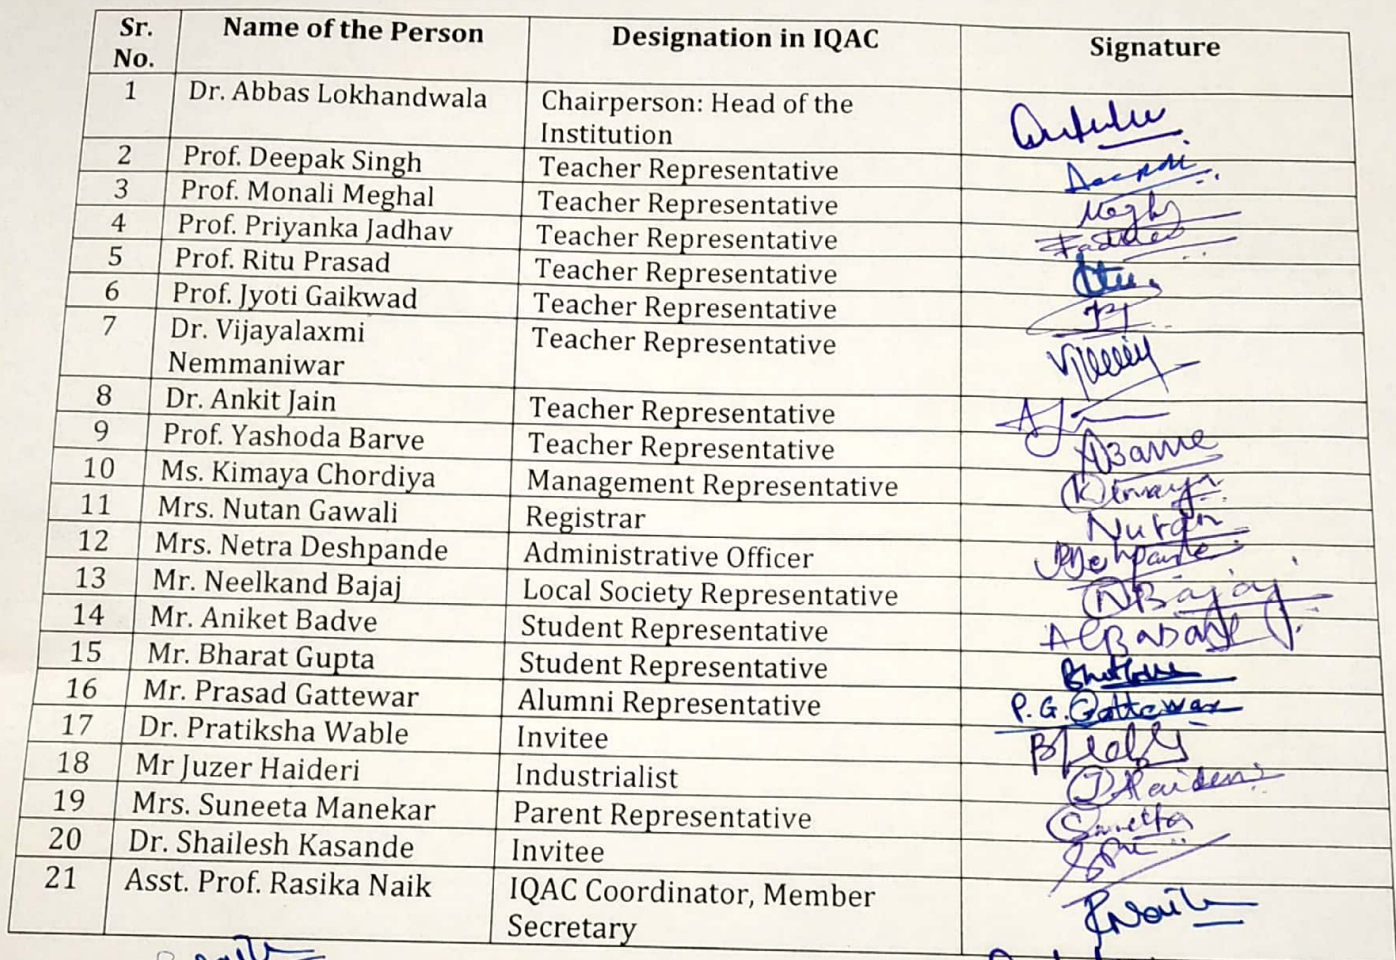 Sr. No. Name of the Person Designation in IQAC Signature
1 Dr. Abbas Lokhandwala Chairperson: Head of the Institution
2 Prof. Deepak Singh Teacher Representative
3 Prof. Monali Meghal Teacher Representative
4 Prof. Priyanka Jadhav Teacher Representative
5 Prof. Ritu Prasad Teacher Representative
6 Prof. Jyoti Gaikwad Teacher Representative
7 Dr. Vijayalaxmi Nemmaniwar Teacher Representative
8 Dr. Ankit Jain Teacher Representative
9 Prof. Yashoda Barve Teacher Representative
10 Ms. Kimaya Chordiya Management Representative
11 Mrs. Nutan Gawali Registrar Nutan
12 Mrs. Netra Deshpande Administrative Officer
13 Mr. Neelkand Bajaj Local Society Representative NBajaj
14 Mr. Aniket Badve Student Representative
15 Mr. Bharat Gupta Student Representative
16 Mr. Prasad Gattewar Alumni Representative P.G.Gattewar
17 Dr. Pratiksha Wable Invitee
18 Mr Juzer Haideri Industrialist
19 Mrs. Suneeta Manekar Parent Representative
20 Dr. Shailesh Kasande Invitee
21 Asst. Prof. Rasika Naik IQAC Coordinator, Member Secretary RNaik